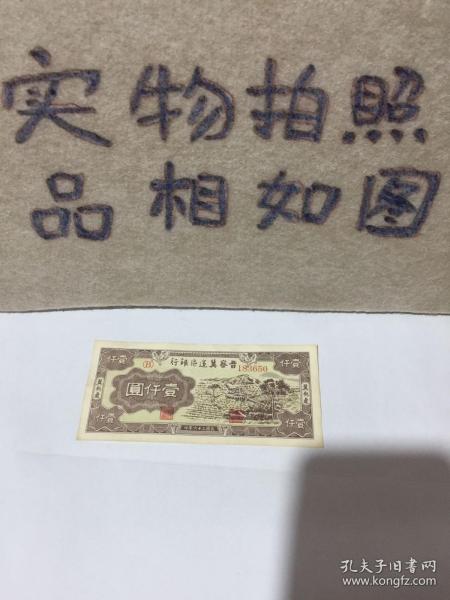 实物拍照
品相如图
行銀區邊冀察晉
(B)
183650
壹仟
壹仟
圓仟壹
壹仟
壹仟
孔夫子旧书网
www.kongfz.com